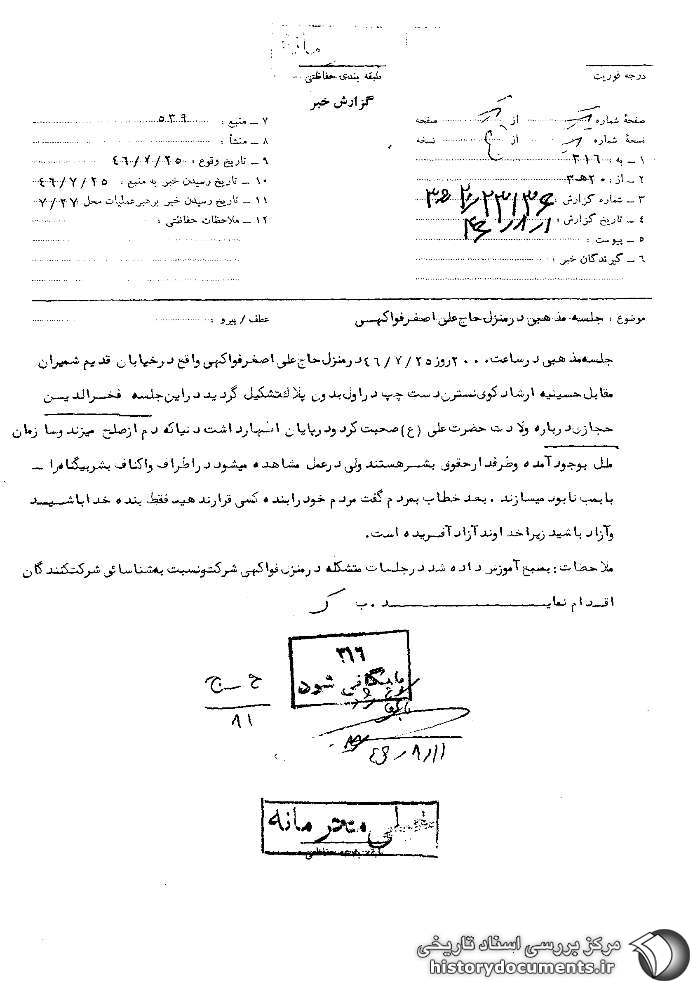 طبقه بندی حفاظتی
درجه فوریت
گزارش خبر
صفحهٔ شماره یک از یک صفحه
نسخهٔ شماره از نسخه
۱ ــ به : ۳۱۶
۲ ــ از : ۲۰هـ۳
۳ ــ شماره گزارش :
۴ ــ تاریخ گزارش :
۵ ــ پیوست :
۶ ــ گیرندگان خبر :
۷ ــ منبع : ۵۳۹
۸ ــ منشأ :
۹ ــ تاریخ وقوع : ۴۶/۷/۲۵
۱۰ ــ تاریخ رسیدن خبر به منبع : ۴۶/۷/۲۵
۱۱ ــ تاریخ رسیدن خبر برهبرعملیات محل ۷/۲۷
۱۲ ــ ملاحظات حفاظتی :
موضوع : جلسه مذهبی درمنزل حاج علی اصغرفواکهی
عطف / پیرو :
جلسه مذهبی درساعت ۲۰۰۰ روز ۴۶/۷/۲۵ درمنزل حاج علی اصغرفواکهی واقع درخیابان قدیم شمیران
مقابل حسینیه ارشاد کوی نسترن دست چپ دراول بدون پلاک تشکیل گردید دراین جلسه فخرالدین
حجازی درباره ولادت حضرت علی (ع) صحبت کرد ودرپایان اظهارداشت دنیا که دم ازصلح میزند وسازمان
ملل بوجود آمده وطرفدارحقوق بشرهستند ولی درعمل مشاهده میشود دراطراف واکناف بشربیگناه را ــ
با بمب نابود میسازند . بعد خطاب بمردم گفت مردم خود رابنده کسی قرارندهید فقط بنده خداباشید
وآزاد باشید زیراخداوند آزاد آفریده است.
ملاحظات : بمنبع آموزش داده شد درجلسات متشکله درمنزل فواکهی شرکت ونسبت به شناسائی شرکت کنندگان
اقدام نماید . ب ک
۳۱۶
بایگانی شود
ح ــ ج
۸۱
۴۶/۸/۱۱
خیلی محرمانه
مرکز بررسی اسناد تاریخی
historydocuments.ir